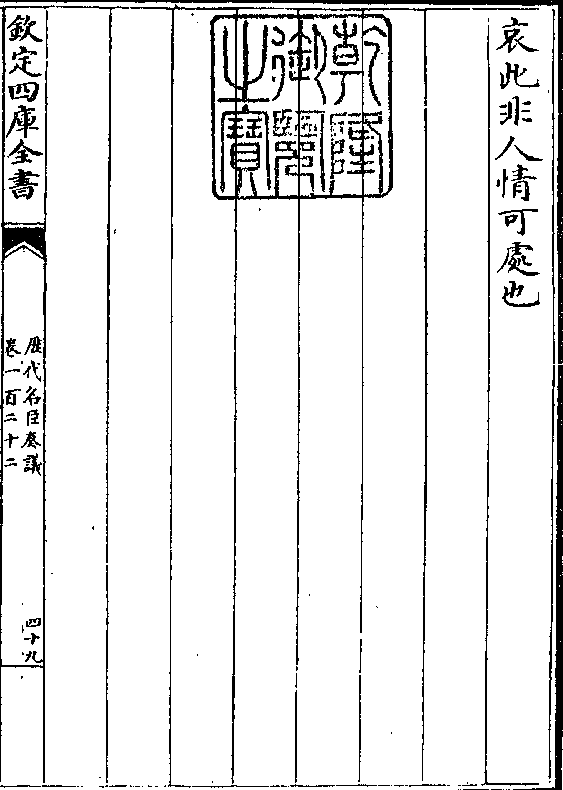 哀此非人情可處也
乾隆
御覽
之寶
欽定四庫全書
歷代名臣奏議
卷一百二十二
四十九